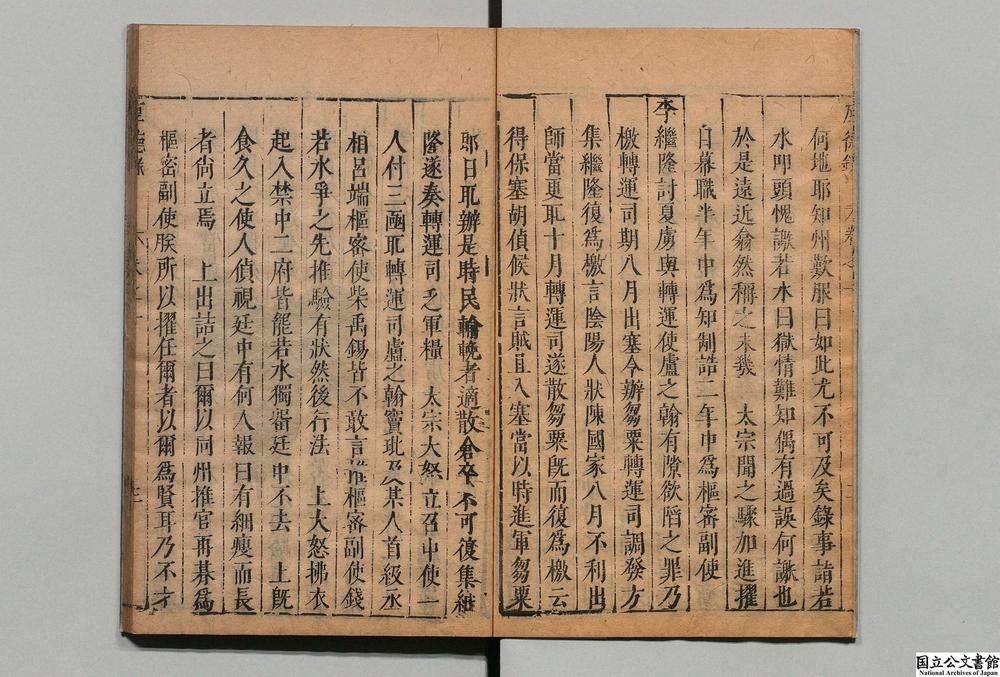 何地耶知州歎服曰如此尤不可及矣錄事詣若
水叩頭愧謝若水曰獄情難知偶有過誤何謝也
於是遠近翕然稱之未幾　太宗聞之驟加進擢
自幕職半年中爲知制誥二年中爲樞密副使
李繼隆討夏虜與轉運使盧之翰有隙欲陷之罪乃
檄轉運司期八月出塞令辦芻粟轉運司調發方
集繼隆復爲檄言陰陽人狀陳國家八月不利出
師當更取十月轉運司遂散芻粟旣而復爲檄云
得保塞胡偵候狀言賊且入塞當以時進軍芻粟
卽日取辦是時民輸輓者適散倉卒不可復集繼
隆遂奏轉運司乏軍糧　太宗大怒立召中使一
人付三函取轉運司盧之翰竇玭及某人首級丞
相呂端樞密使柴禹錫皆不敢言惟樞密副使錢
若水爭之先推驗有狀然後行法　上大怒拂衣
起入禁中二府皆罷若水獨畱廷中不去　上旣
食久之使人偵視廷中有何人報曰有細瘦而長
者尙立焉　上出詰之曰爾以同州推官再朞爲
樞密副使朕所以擢任爾者以爾爲賢耳乃不才
国立公文書館
National Archives of Japan